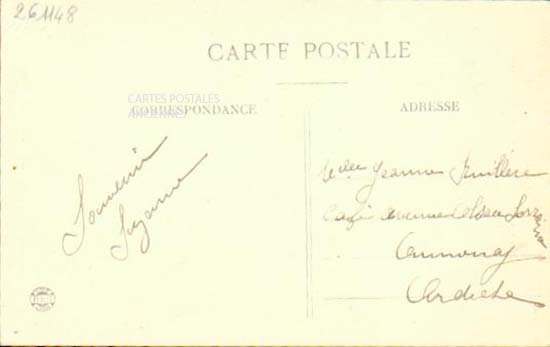 261148
CARTE POSTALE
CARTES POSTALES
ANCIENNES
CORRESPONDANCE
ADRESSE
Souvenir
Suzanne
Melle Jeanne
Café avenue Alsace Lorraine
Annonay
Ardèche